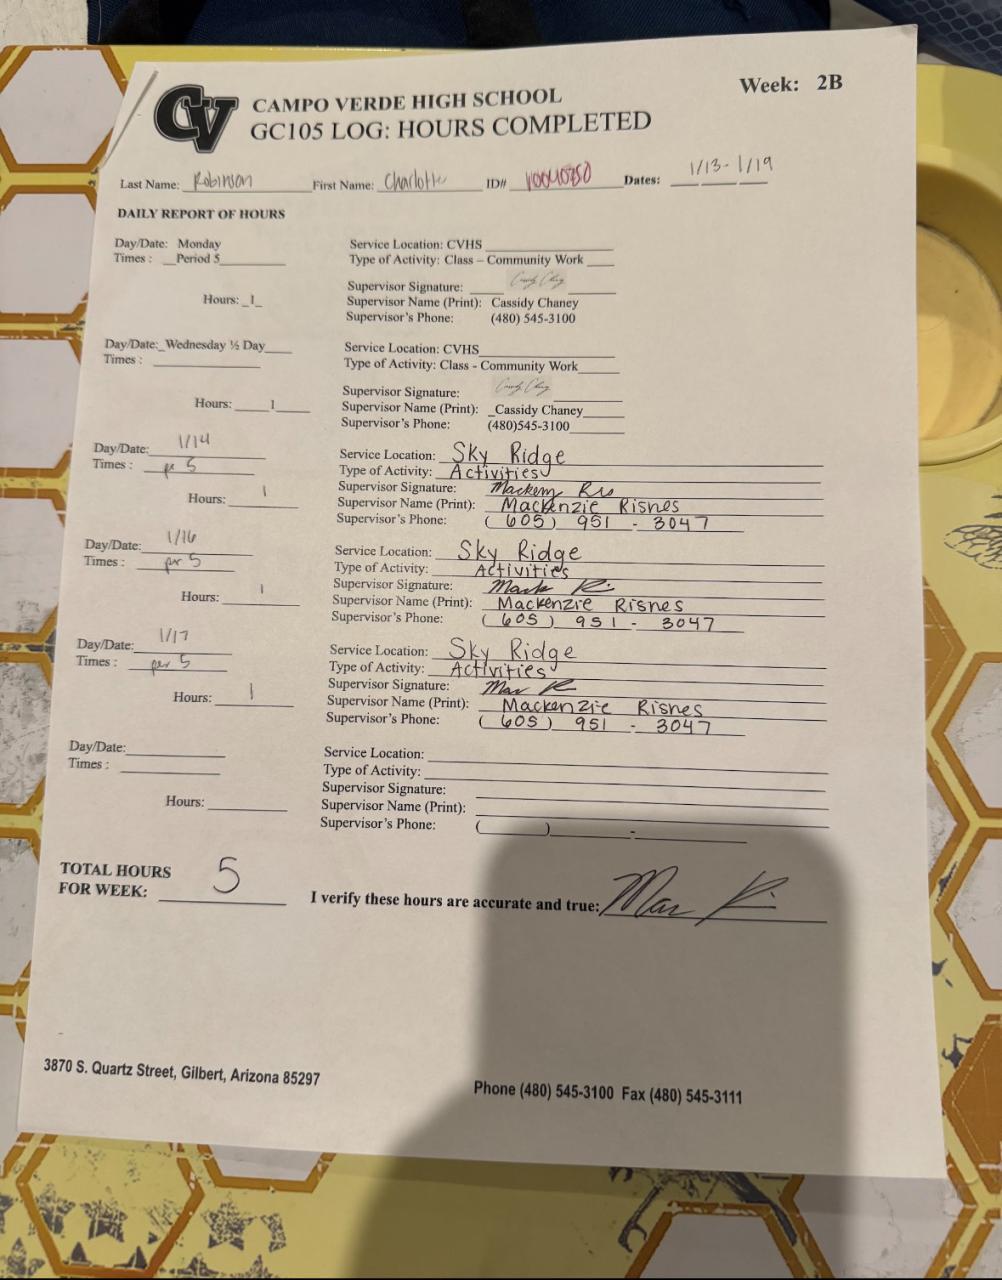 Week: 2B
CV CAMPO VERDE HIGH SCHOOL
GC105 LOG: HOURS COMPLETED
Last Name: Robinson First Name: Charlotte ID# 10040750 Dates: 1/13 - 1/19
DAILY REPORT OF HOURS
Day/Date: Monday Service Location: CVHS
Times : Period 5 Type of Activity: Class – Community Work
Supervisor Signature:
Hours: 1 Supervisor Name (Print): Cassidy Chaney
Supervisor's Phone: (480) 545-3100
Day/Date: Wednesday ½ Day Service Location: CVHS
Times : Type of Activity: Class - Community Work
Supervisor Signature:
Hours: 1 Supervisor Name (Print): Cassidy Chaney
Supervisor's Phone: (480)545-3100
Day/Date: 1/14 Service Location: Sky Ridge
Times : pe 5 Type of Activity: Activities
Supervisor Signature:
Hours: 1 Supervisor Name (Print): Mackenzie Risnes
Supervisor's Phone: (605) 951 - 3047
Day/Date: 1/16 Service Location: Sky Ridge
Times : per 5 Type of Activity: Activities
Supervisor Signature:
Hours: 1 Supervisor Name (Print): Mackenzie Risnes
Supervisor's Phone: (605) 951 - 3047
Day/Date: 1/17 Service Location: Sky Ridge
Times : per 5 Type of Activity: Activities
Supervisor Signature:
Hours: 1 Supervisor Name (Print): Mackenzie Risnes
Supervisor's Phone: (605) 951 - 3047
Day/Date: Service Location:
Times : Type of Activity:
Supervisor Signature:
Hours: Supervisor Name (Print):
Supervisor's Phone: ( ) -
TOTAL HOURS
FOR WEEK: 5 I verify these hours are accurate and true:
3870 S. Quartz Street, Gilbert, Arizona 85297
Phone (480) 545-3100 Fax (480) 545-3111